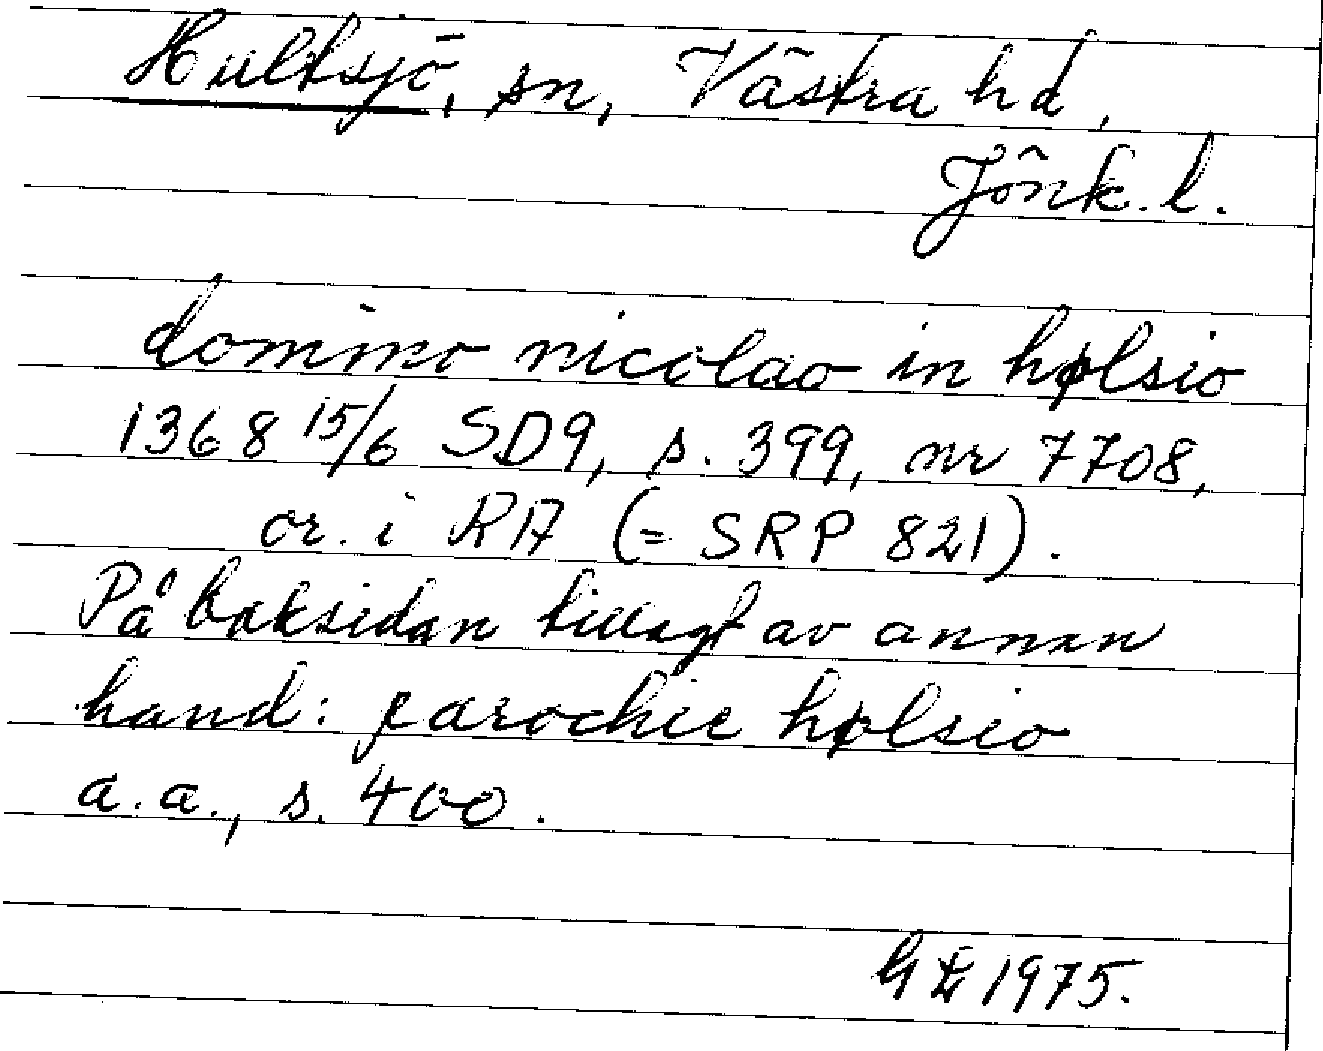 Hultsjö, sn, Västra hd,
Jönk. l.
domino nicolao in hølsio
1368 15/6 SD9, s. 399, nr 7708,
or. i RA (= SRP 821).
På baksidan tillagt av annan
hand: parochie hølsio
a.a., s. 400.
1975.